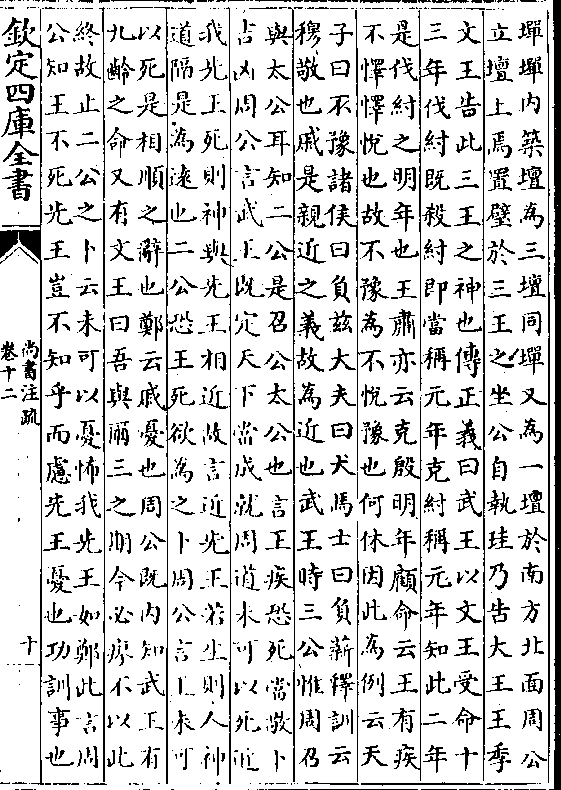 墠墠内築壇為三壇同墠又為一壇於南方北面周公
立壇上焉置璧於三王之坐公自執珪乃告大王王季
文王告此三王之神也傳正義曰武王以文王受命十
三年伐紂既殺紂即當稱元年克紂稱元年知此二年
是伐紂之明年也王肅亦云克殷明年顧命云王有疾
不懌懌悅也故不豫為不悅豫也何休因此為例云天
子曰不豫諸侯曰負兹大夫曰犬馬士曰負薪釋訓云
穆敬也戚是親近之義故為近也武王時三公惟周召
與太公耳知二公是召公太公也言王疾恐死當敬卜
吉凶周公言武王既定天下當成就周道未可以死近
我先王死則神與先王相近故言近先王若生則人神
道隔是為遠也二公恐王死欲為之卜周公言王未可
以死是相順之辭也鄭云戚憂也周公既内知武王有
九齡之命又有文王曰吾與爾三之期今必瘳不以此
終故止二公之卜云未可以憂怖我先王如鄭此言周
公知王不死先王豈不知乎而慮先王憂也功訓事也
欽定四庫全書
尚書注疏
卷十二
十